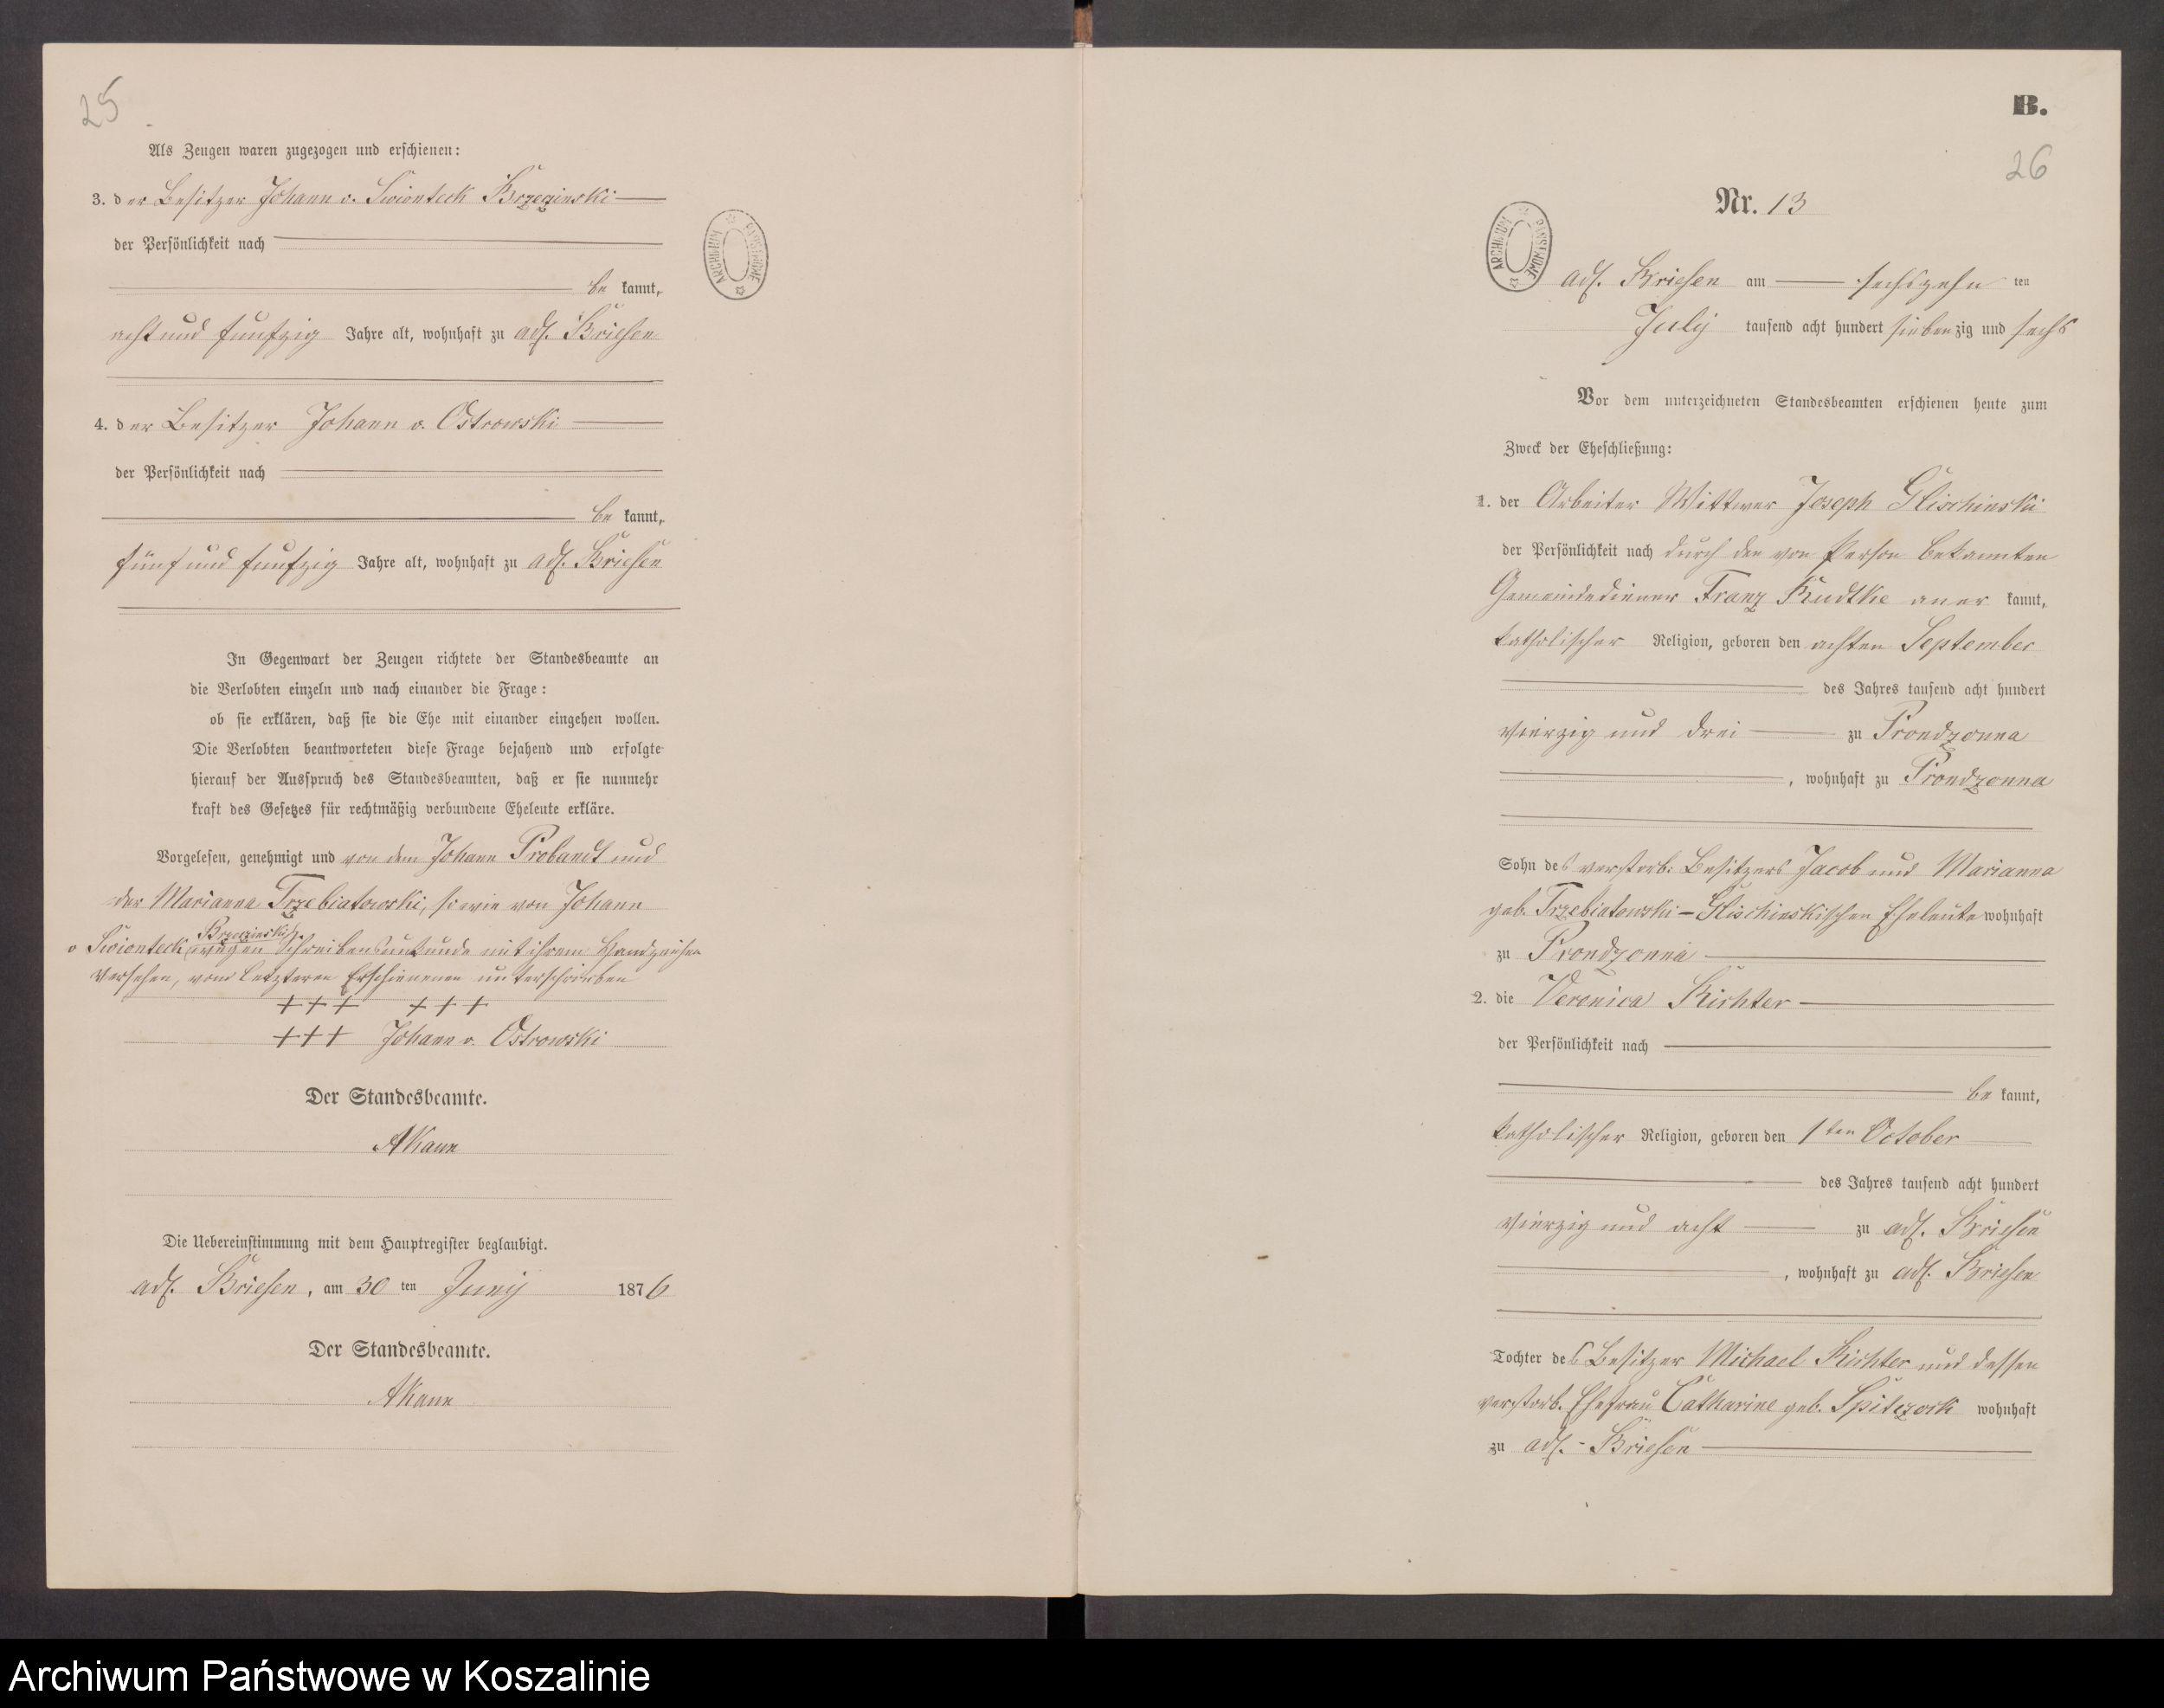 25
Als Zeugen waren zugezogen und erschienen:
3. der Besitzer Johann v. Swionteck Brzezinski
der Persönlichkeit nach
be kannt,
acht und funfzig Jahre alt, wohnhaft zu adl. Briesen
4. der Besitzer Johann v. Ostrowski
der Persönlichkeit nach
be kannt,
fünf und funfzig Jahre alt, wohnhaft zu adl. Briesen
In Gegenwart der Zeugen richtete der Standesbeamte an
die Verlobten einzeln und nach einander die Frage:
ob sie erklären, daß sie die Ehe mit einander eingehen wollen.
Die Verlobten beantworteten diese Frage bejahend und erfolgte
hierauf der Ausspruch des Standesbeamten, daß er sie nunmehr
kraft des Gesetzes für rechtmäßig verbundene Eheleute erkläre.
Vorgelesen, genehmigt und von dem Johann Probandt und
der Marianna Trzebiatowski, sowie von Johann
Brzezinski
v Swionteck wegen Schreibensunkunde mit ihrem Handzeichen
versehen, vom Letzteren Erschienenen unterschrieben
+++ +++
+++ Johann v. Ostrowski
Der Standesbeamte.
AKann
Die Uebereinstimmung mit dem Hauptregister beglaubigt.
adl. Briesen, am 30 ten Juny 1876
Der Standesbeamte.
AKann
ARCHIWUM PAŃSTWOWE
B.
26
Nr. 13
ARCHIWUM PAŃSTWOWE
adl. Briesen am sechszehn ten
July tausend acht hundert siebenzig und sechs
Vor dem unterzeichneten Standesbeamten erschienen heute zum
Zweck der Eheschließung:
1. der Arbeiter Wittwer Joseph Glischinski
der Persönlichkeit nach durch den von Person bekannten
Gemeindediener Franz Rudtke aner kannt,
katholischer Religion, geboren den achten September
des Jahres tausend acht hundert
vierzig und drei zu Prondzonna
, wohnhaft zu Prondzonna
Sohn des verstorb: Besitzers Jacob und Marianna
geb. Trzebiatowski - Glischinskischen Eheleute wohnhaft
zu Prondzonna
2. die Veronica Richter
der Persönlichkeit nach
be kannt,
katholischer Religion, geboren den 1ten October
des Jahres tausend acht hundert
vierzig und acht zu adl. Briesen
, wohnhaft zu adl. Briesen
Tochter des Besitzer Michael Richter und dessen
verstorb. Ehefrau Catharine geb. Spitczock wohnhaft
zu adl.- Briesen
Archiwum Państwowe w Koszalinie